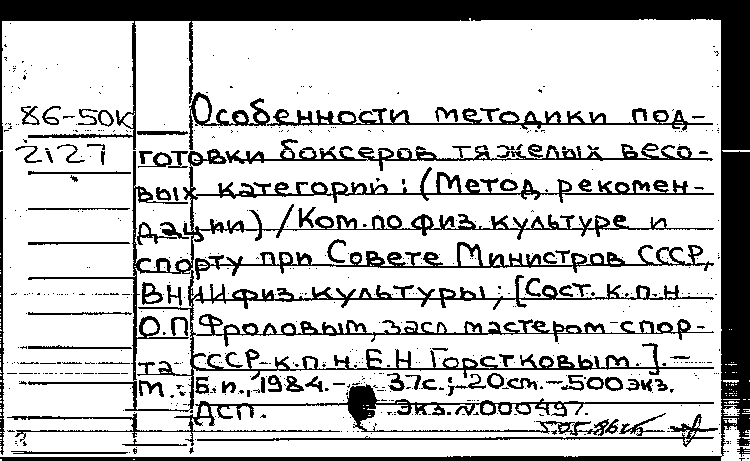 86-50К Особенности методики под-
2127 готовки боксеров тяжелых весо-
вых категорий : (Метод. рекомен-
дации) / Ком. по физ. культуре и
спорту при Совете Министров СССР,
ВНИИ физ. культуры ; [Сост. к.п.н
О.П Фроловым, засл мастером спор-
та СССР, к.п.н. Е.Н Горстковым.]. –
М. : Б.и., 1984. – 37с. ; 20см. – 500экз.
ДСП. Экз. N000497.
5.05.86